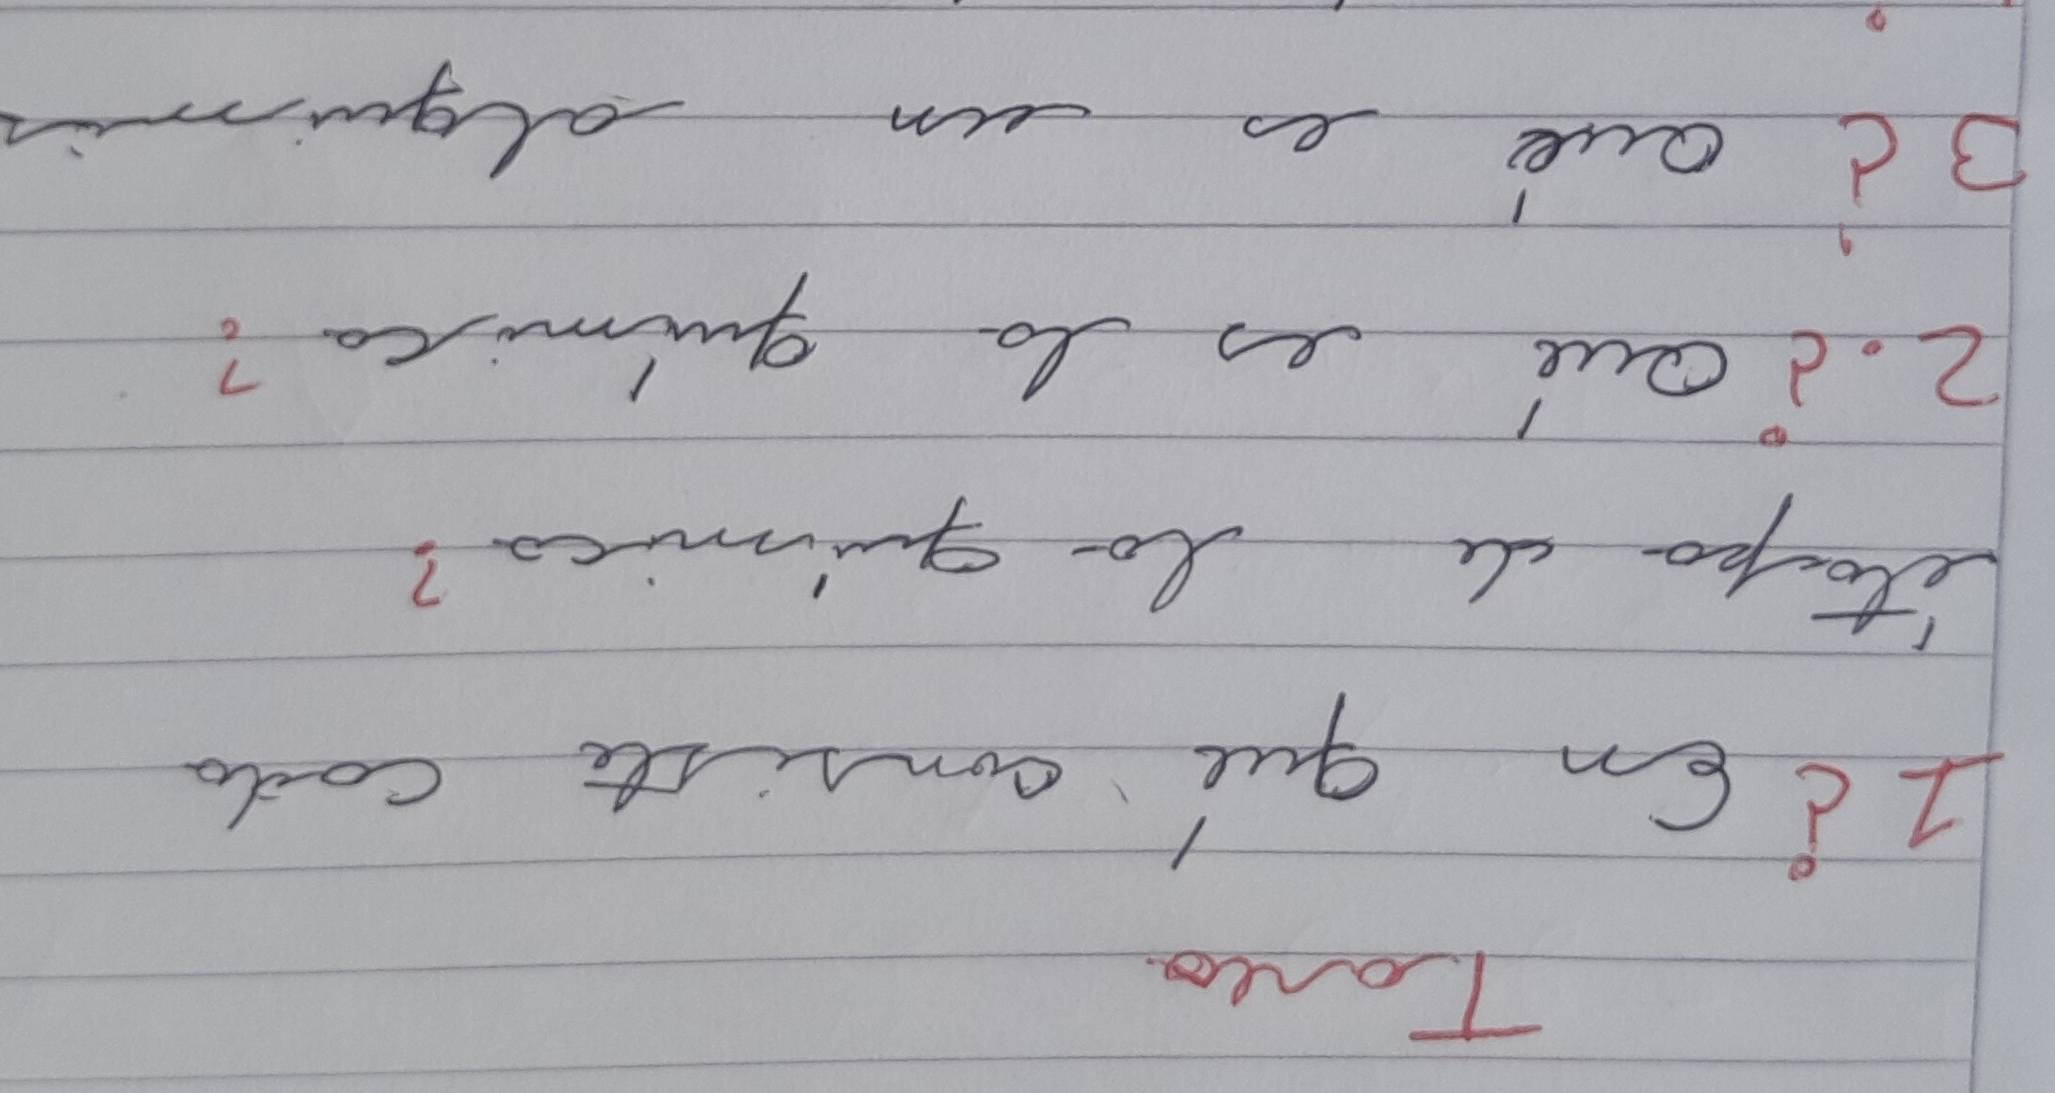 Tarea
1 ¿ En qué consiste cada
étapa de la química ?
2. ¿ Qué es la química ?
3 ¿ Qué es un alquimis